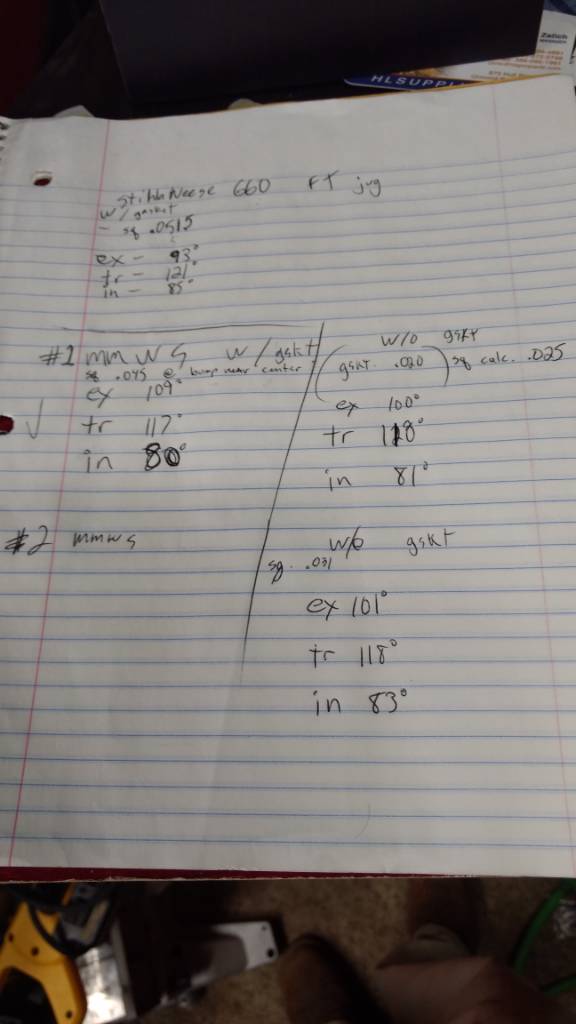 Zalich
HLSUPPLI
660 FT jug
w/ gasket
- sq .0515
ex - 93°
tr - 121°
in - 85°
#1 mm WS w/gskt
sq .045 @ bump near center
ex 109°
tr 117°
in 80°
w/o gskt
(gskt. .020) sq calc. .025
ex 100°
tr 118°
in 81°
#2 mmws
w/o gskt
sq. .031
ex 101°
tr 118°
in 83°